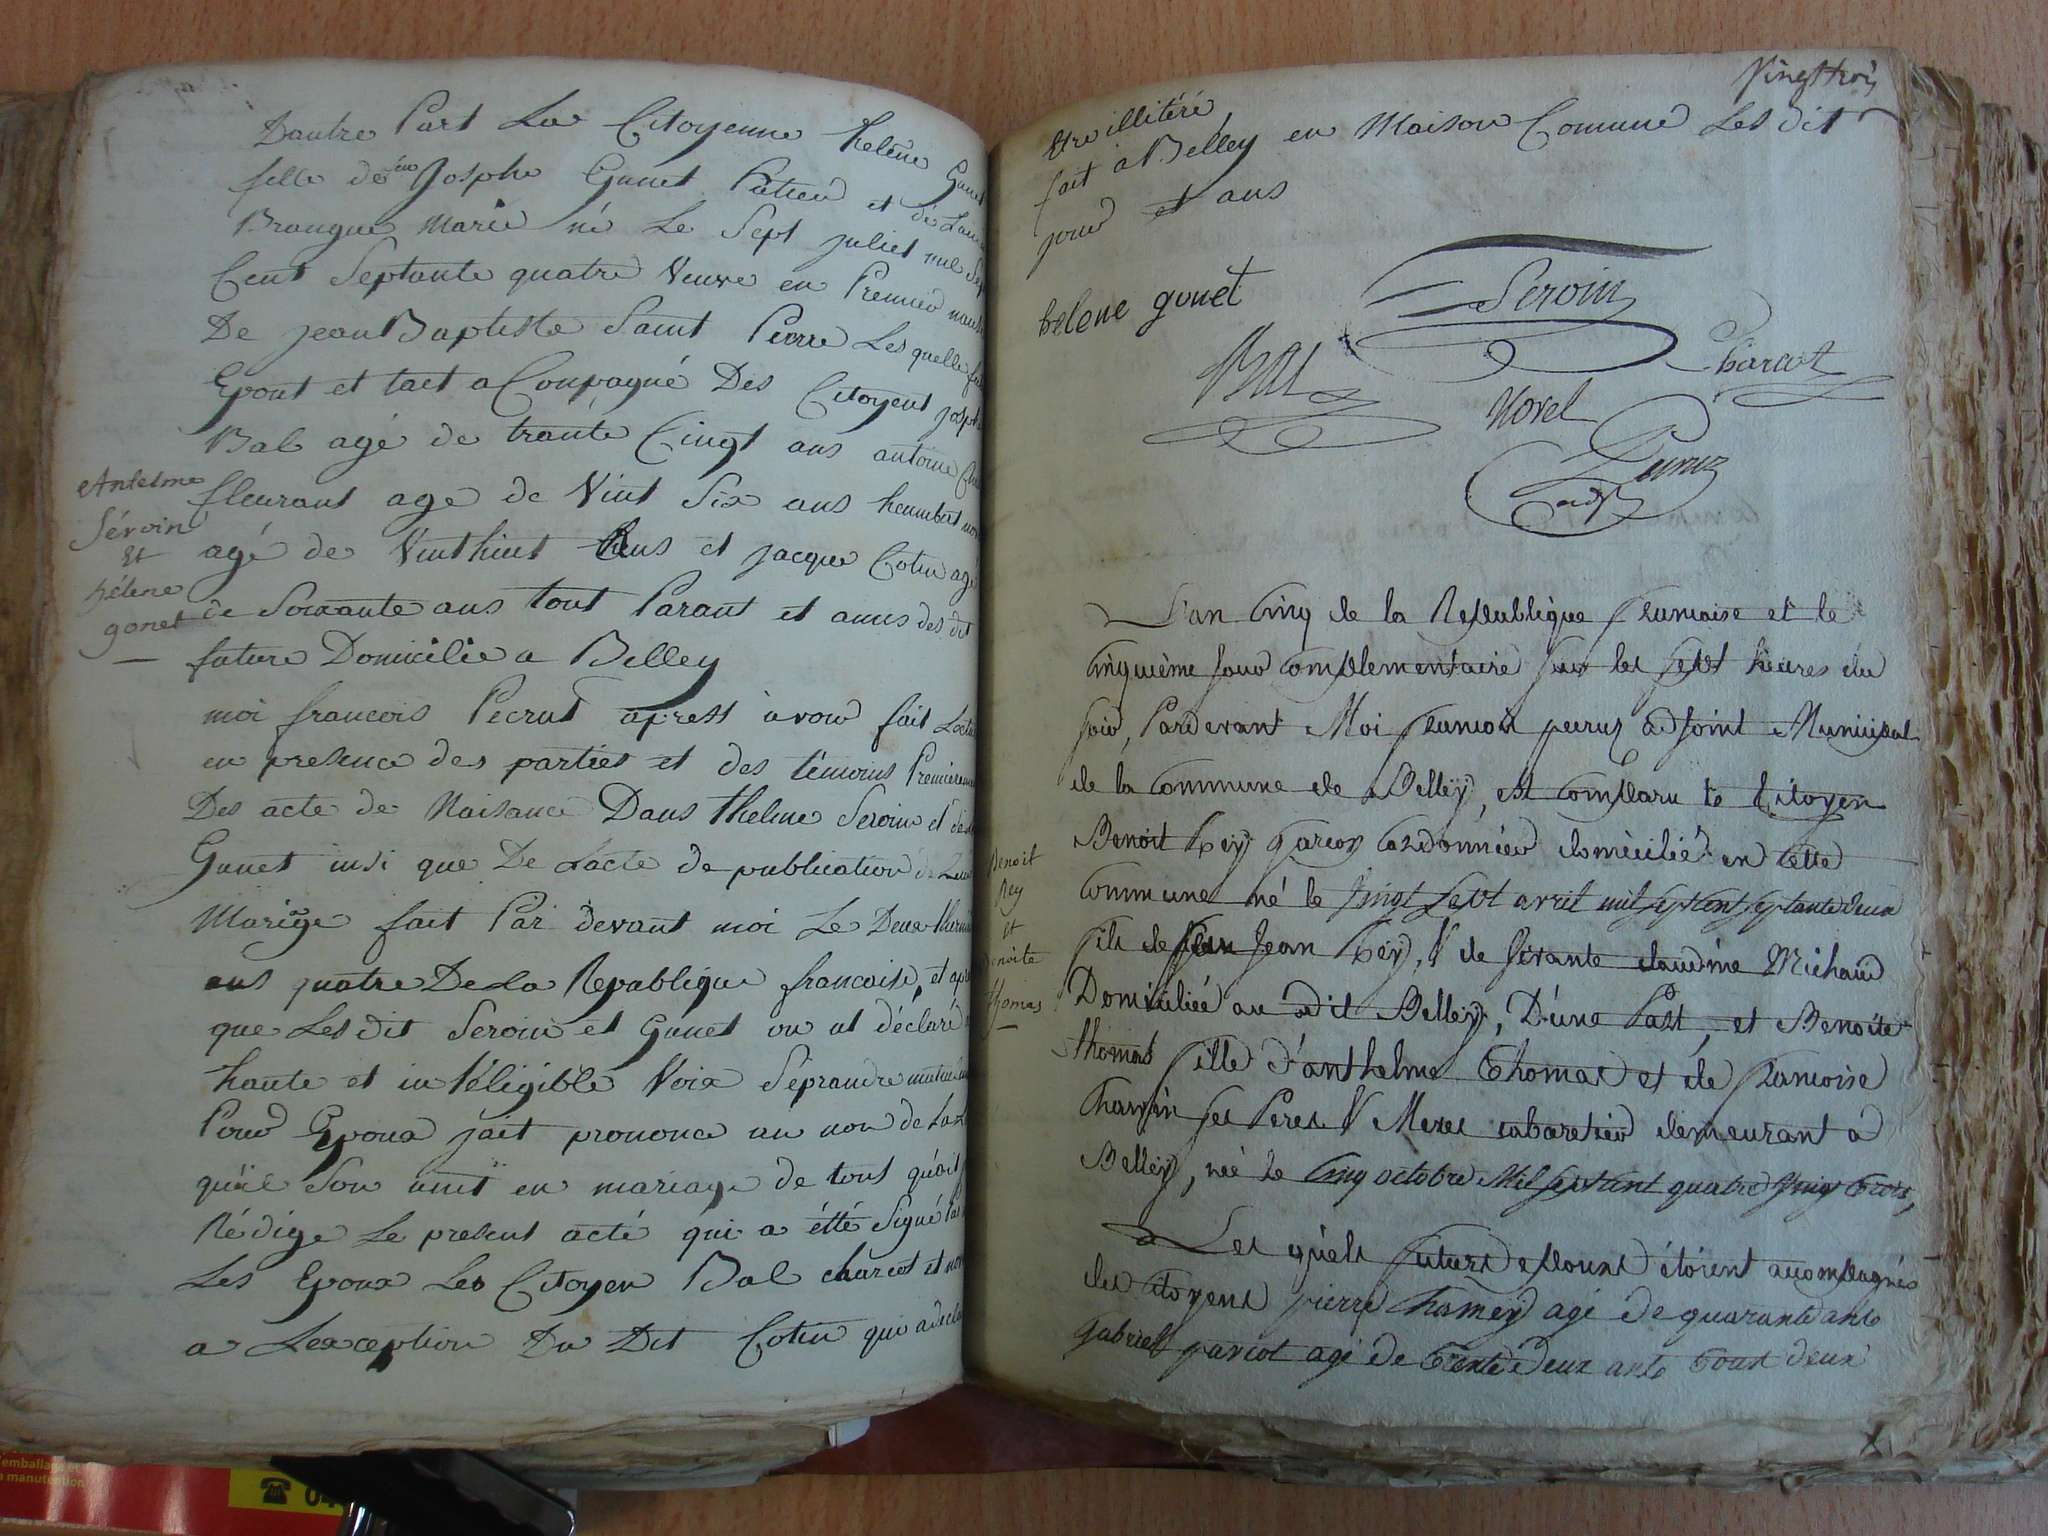 Dautre Part La Citoyenne helene Gunet
fille de feu Josphe Gunet Patien et de
Brangue Marie né Le Sept juliet mil Sep
Cent Septante quatre Veuve en Premier
De jean Baptiste Saint Pierre Les quelle
Epout et tait a Compagné Des Citoyent josph
Bal agé de trante Cingt ans antoine
fleurant age de Vint Six ans heumbert
agé de Vinthint ans et jacque Cotin agé
de Soixante ans tout Parant et amis des dit
future Domicilie a Belley
Anlelme
Séroin
Et
hélene
gonet
moi francois Pecrut apress avoir fait
en presence des parties et des témoins Premierem
Des acte de Naisance Dans thelme Seroin et de
Gunet insi que De Lacte de publication de
Mariage fait Par devant moi Le Deux
ans quatre De La Republique francaise, et
que Les dit Seroin et Gunet on at déclaré
haute et in téligible VoixSéprandre
Pour Epoux jait prononcé au non de La
quiïl Son unit en mariage de tout quoit
Rédige Le present acté qui a étté Signé Par
Les Epoux Les Citoyen Bal charcot et
a Lexception Du Dit Cotin qui a
Vingttrois
Etre illitéré
fait a Belley en Maison Comune Les dit
jour et ans
helene gonet
Seroin
Bal
Charcot
Morel
Peruz
adjt
L'an Cinq de la Republique francaise et le
cinquième jour complementaire sur les sept heures du
soir, Pardevant Moi francois peruz adjoint Municipal
de la commune de Belley, est comparu le Citoyen
Benoit Rey garcon Cordonnier domicilié en cette
commune né le vingt sept avril mil sept cent septante deux
fils de feu Jean Rey, & de vivante claudine Michaud
Domiciliée au dit Belley, D'une Part, et Benoite
thomas fille d'anthelme Thomas et de francoise
ses Peres & Meres cabaretier demeurant a
Belley, née le cinq octobre Mil sept cent quatre vingt trois,
Benoit
Rey
et
Benoite
thomas
Les quels futurs epoux étoient accompagnés
des Citoyens pierre agé de quarante ans
Gabriel parcot agé De trente deux ans tout deux
'emballage et
a manutention
☎ 04